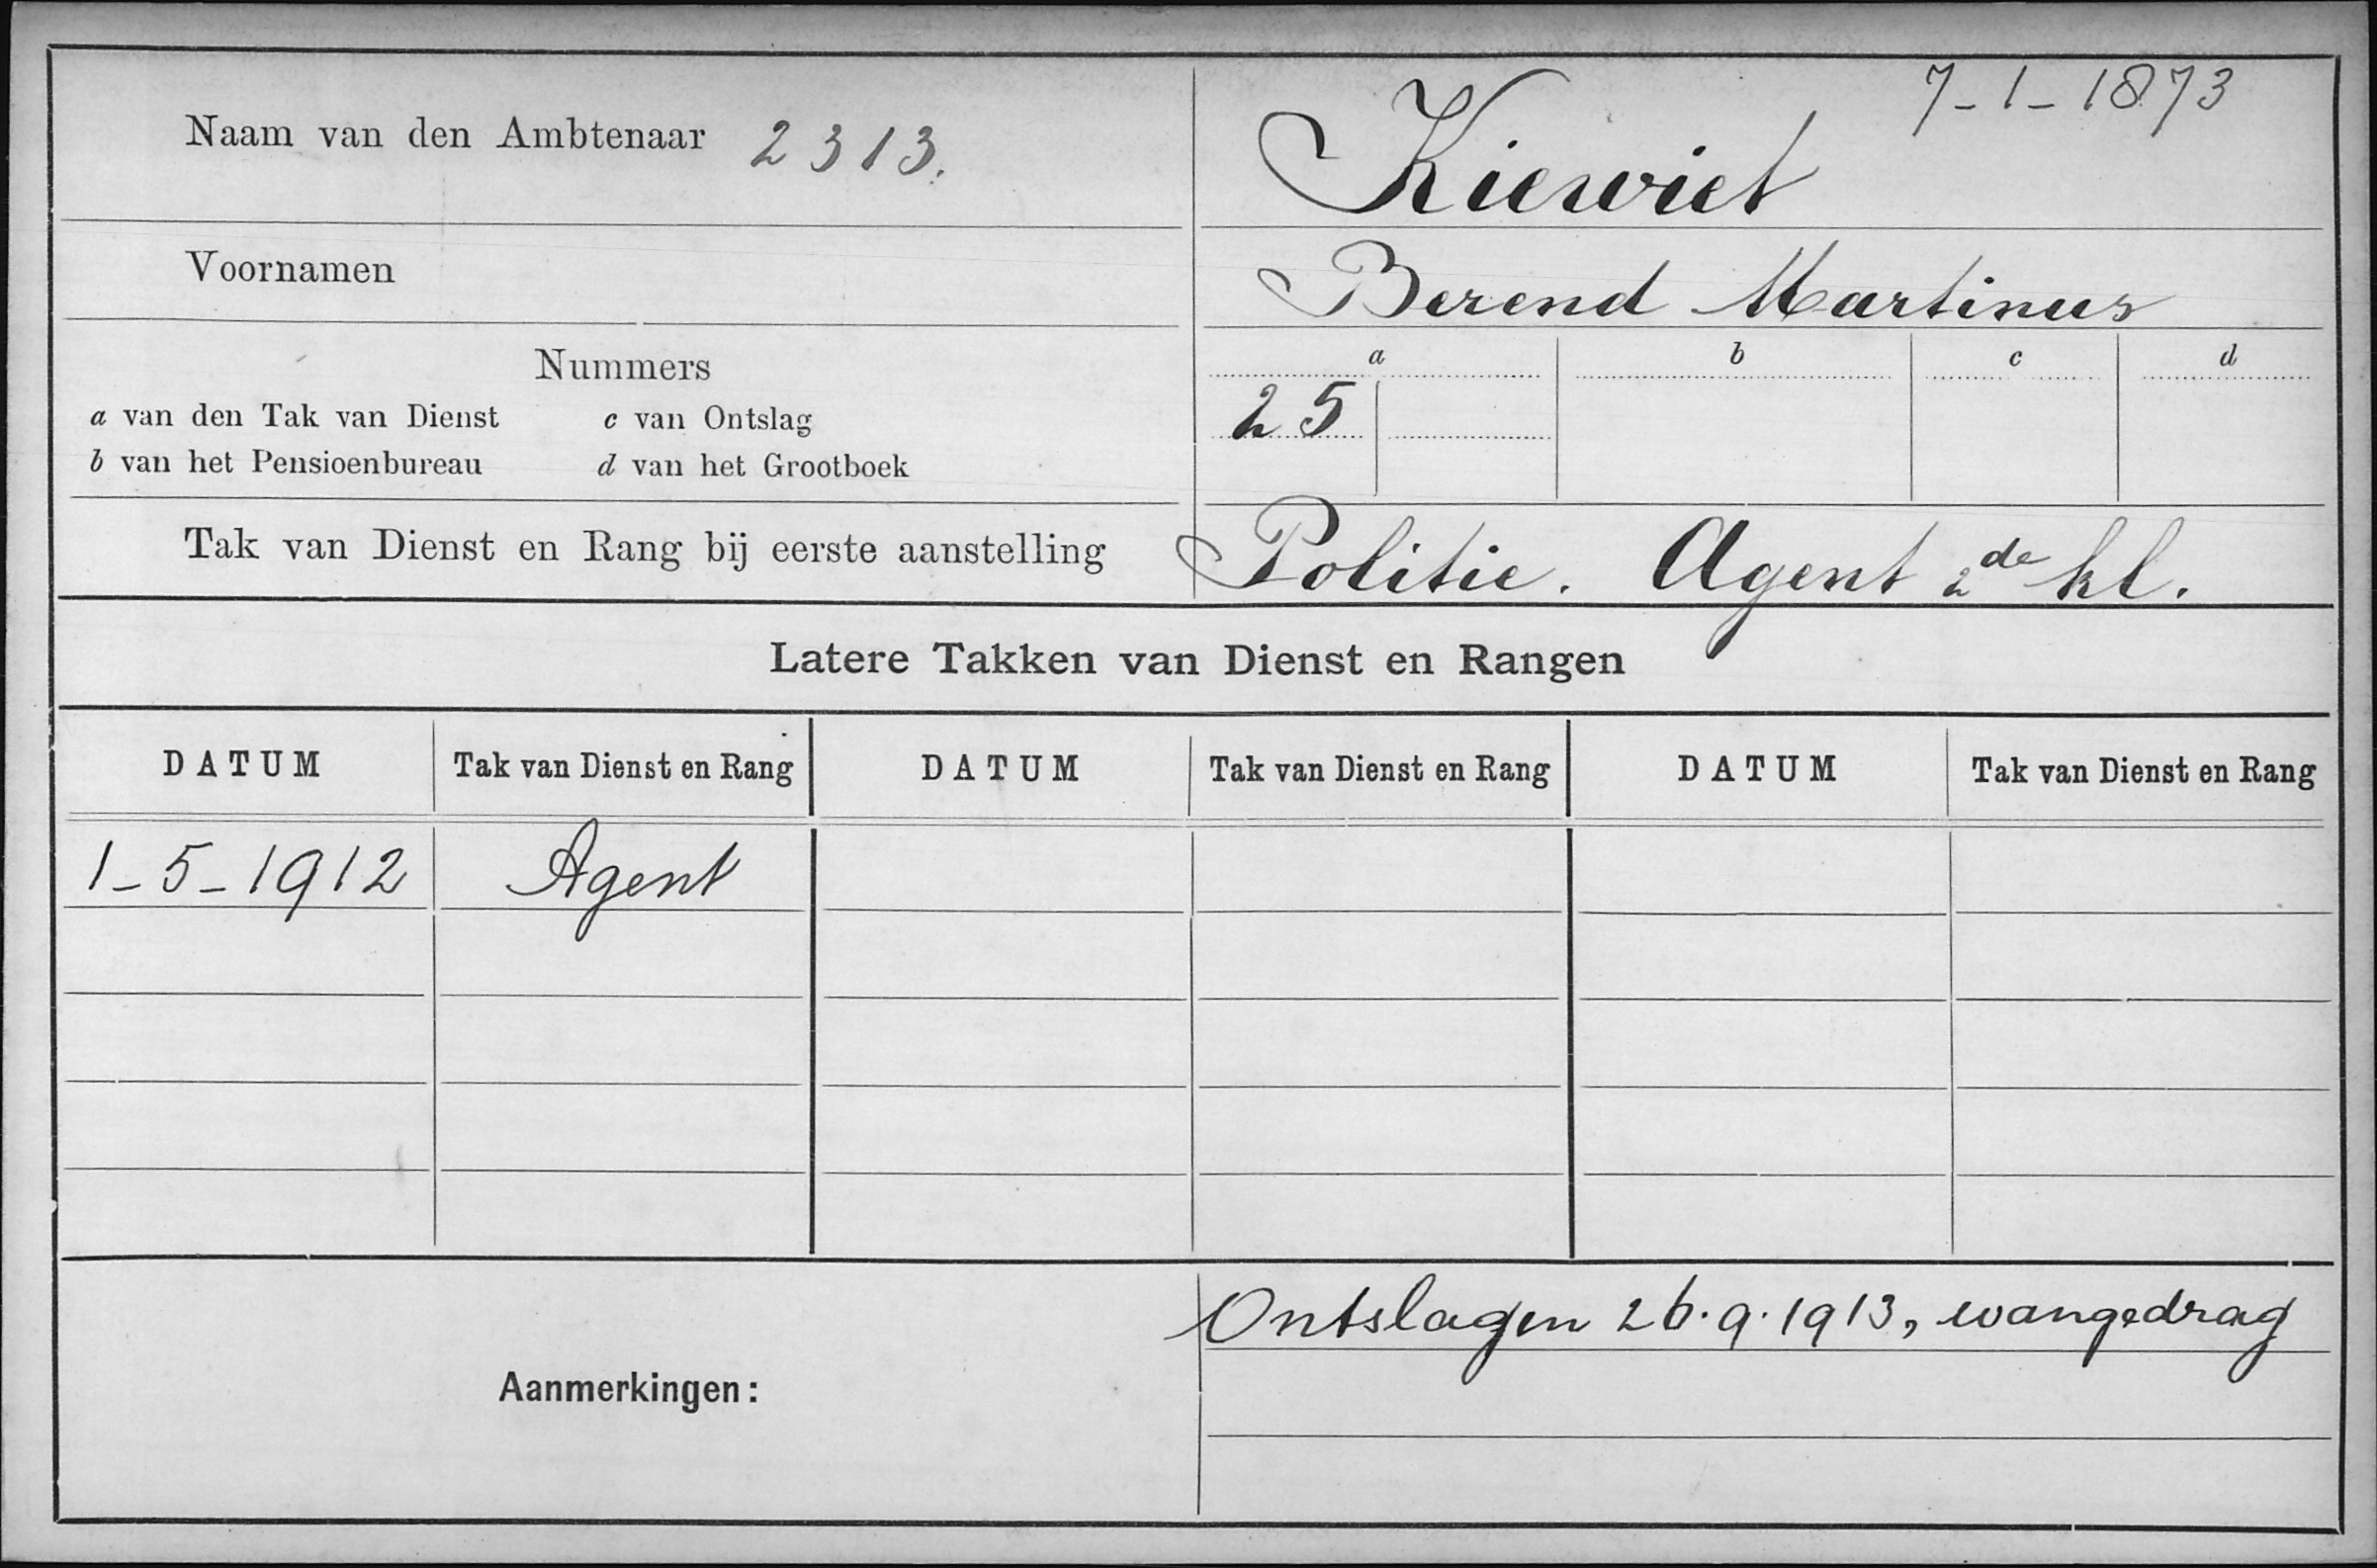 7-1-1873
Naam van den Ambtenaar 2313. Kiewiet
Voornamen Berend Martinus
Nummers a b c d
a van den Tak van Dienst c van Ontslag 25
b van het Pensioenbureau d van het Grootboek
Tak van Dienst en Rang bij eerste aanstelling Politie. Agent 2de kl.
Latere Takken van Dienst en Rangen
DATUM Tak van Dienst en Rang DATUM Tak van Dienst en Rang DATUM Tak van Dienst en Rang
1-5-1912 Agent
Ontslagen 26.9.1913, wangedrag
Aanmerkingen: